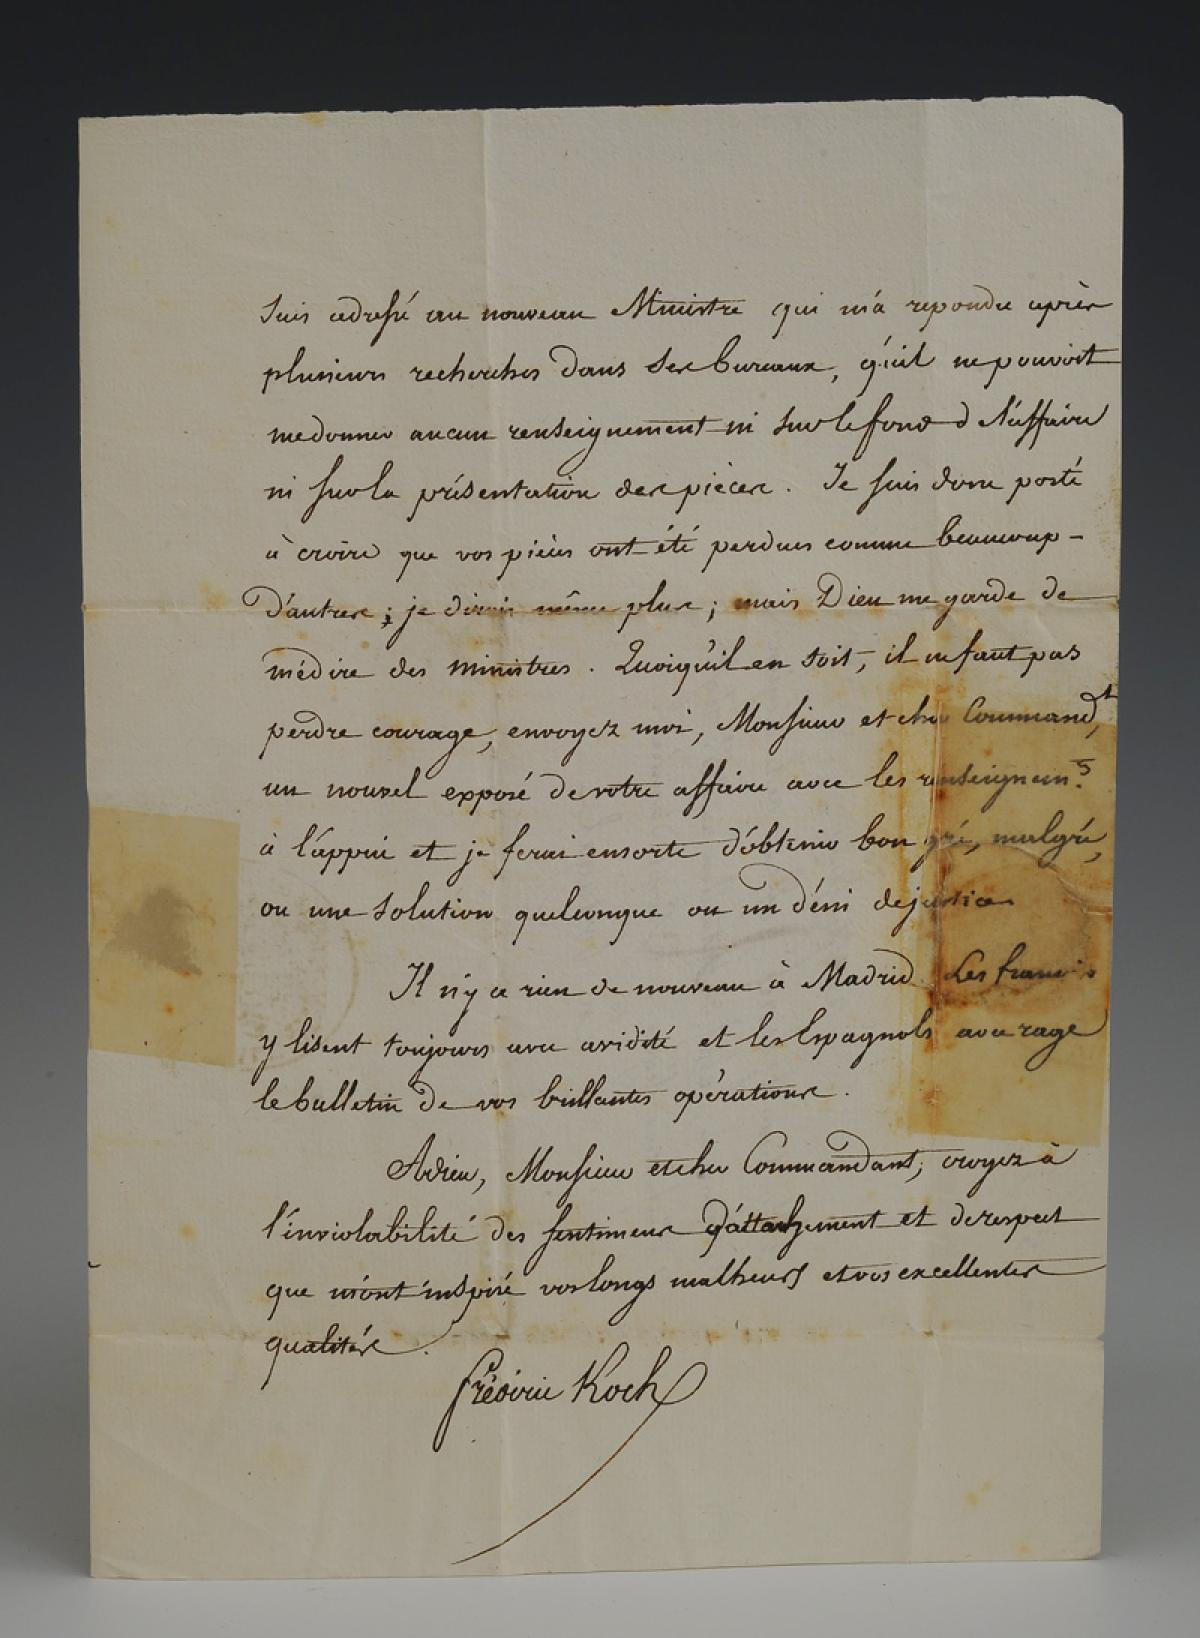 suis adressé au nouveau Ministre qui m'a repondu après
plusieurs recherches dans ses bureaux, qu'il ne pouvoit
me donner aucun renseignement ni sur le fond d l'affaire
ni sur la présentation des pièces. Je suis donc porté
à croire que vos pièces ont été perdues comme beaucoup -
d'autres ; je dirois même plus ; mais Dieu me garde de
médire des ministres. Quoiqu'il en soit, il ne faut pas
perdre courage, envoyez moi, Monsieur et cher Command.t,
un nouvel exposé de votre affaire avec les renseignem.s
à l'appui et je ferai ensorte d'obtenir bon gré, malgré,
ou une solution quelconque ou un déni de justice
Il n'y a rien de nouveau à Madrid. Les francais
y lisent toujours avec avidité et les Espagnols avec rage
le bulletin de vos brillantes opérations.
Adieu, Monsieur et cher Commandant, croyez à
l'inviolabilité des sentimens d'attachement et de respect
que m'ont inspiré vos longs malheurs et vos excellentes
qualités.
Fréderic Koch